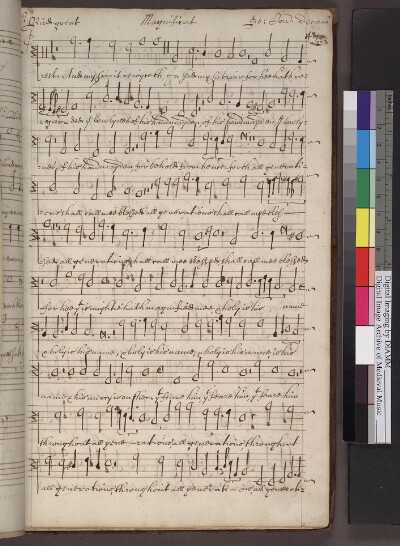 Magnificat
And my spirit rejoyceth in God my saviour for he hath re=
=garded ye lowlynes of his handmayden, of his handmayden ye lowly=
=nes, of his handmayden for behold from hencforth all generati=
=ons shall call mee blessed all generations shall call me bles=
=sed all generations shall call mee blessed shall call mee blessed
for hee yt is mighty hath magnified mee, & holy is his name
& holy is his name, & holy is his name, & holy is his name, & holy is his
name & his mercy is on them yt feare him yt feare him, yt feare him
throughout all gene = rations all generations throughout
all generations throughout all generati = ons all generati=
Digital Imaging by DIAMM
Digital Image Archive of Medieval Music